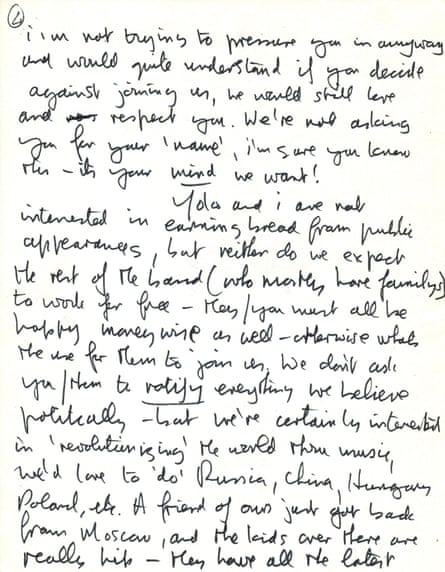 6
i'm not trying to pressure you in anyway
and would quite understand if you decide
against joining us, we would still love
and respect you. We're not asking
you for your 'name', i'm sure you know
this – its your mind we want!
Yoko and i are not
interested in earning bread from public
appearances, but neither do we expect
the rest of the band (who mostly have familys)
to work for free – they/you must all be
happy money wise as well – otherwise whats
the use for them to join us. We don't ask
you/them to ratify everything we believe
politically – but we're certainly interested
in 'revolutionizing' the world thru music,
we'd love to 'do' Russia, China, Hungary
Poland, etc. A friend of ours just got back
from Moscow, and the kids over there are
really hip – they have all the latest